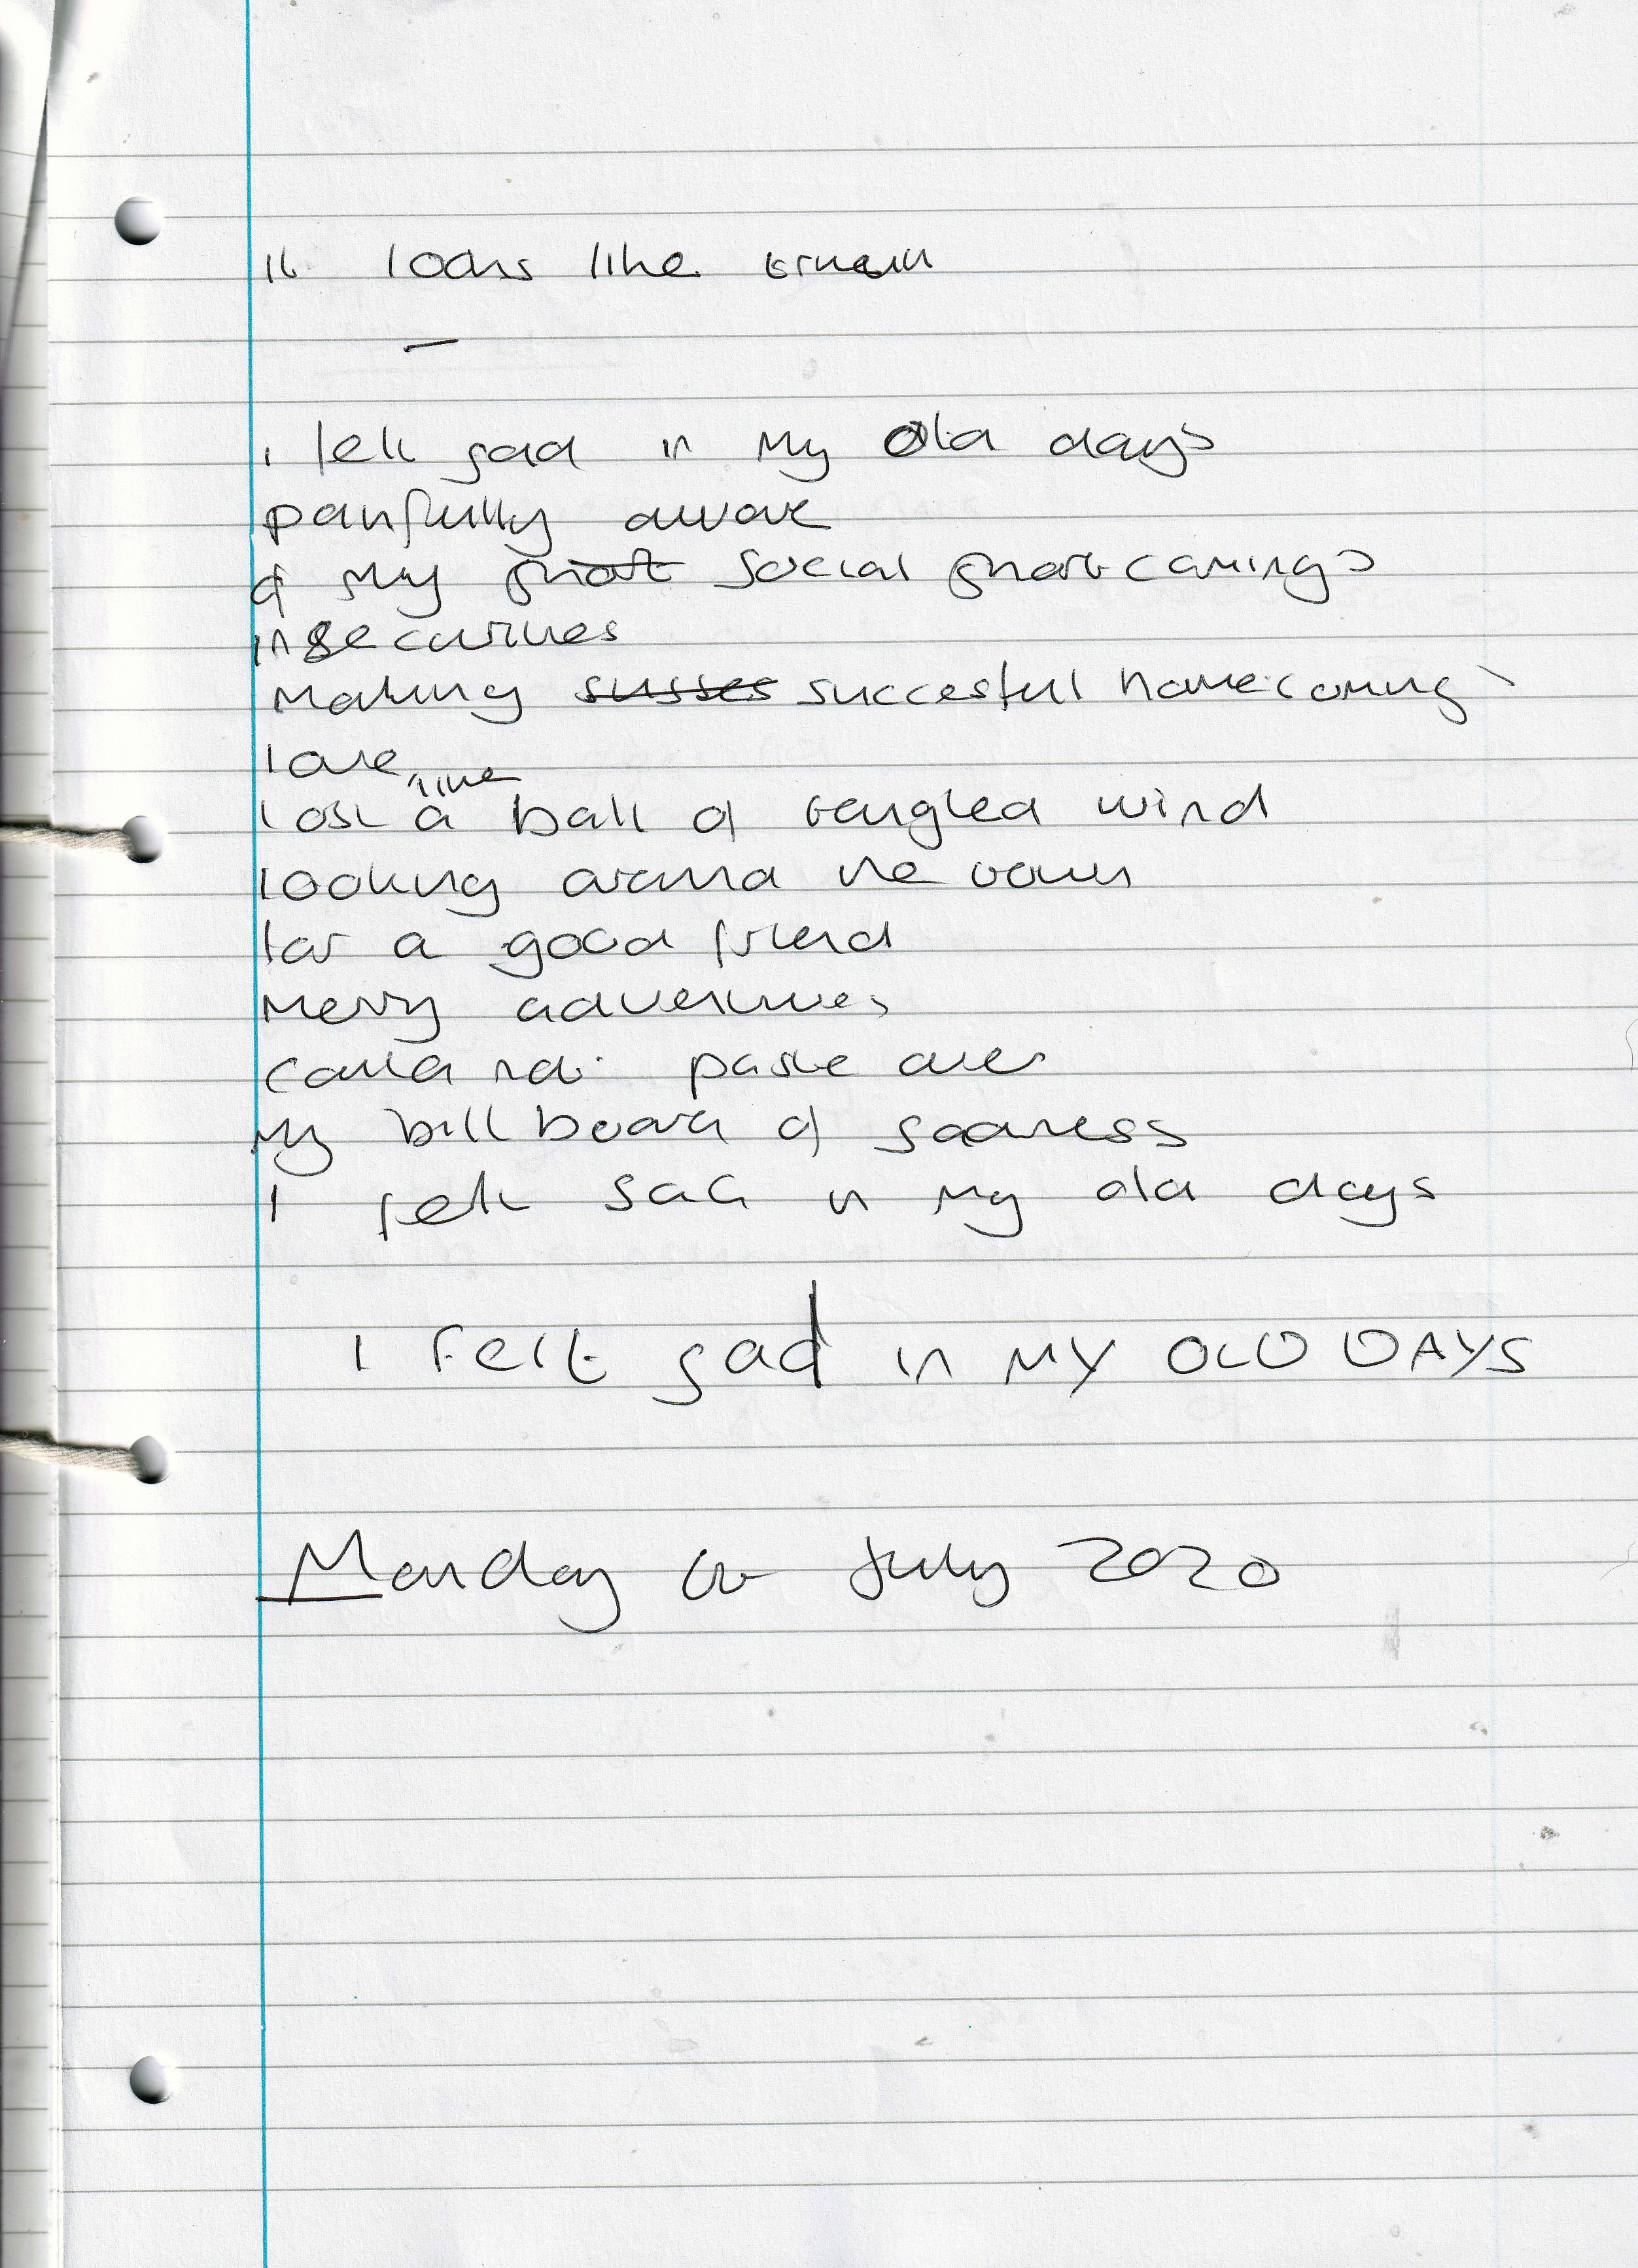 it looks like
—
i felt sad in my old days
painfully aware
of my short social shortcomings
insecurities
making susses succesful homecomings
love
lost like a ball of tangled wind
looking around the town
for a good friend
merry adventures
could not paste over
my billboard of sadness
I felt sad in my old days
I felt sad in MY OLD DAYS
Monday 6th July 2020